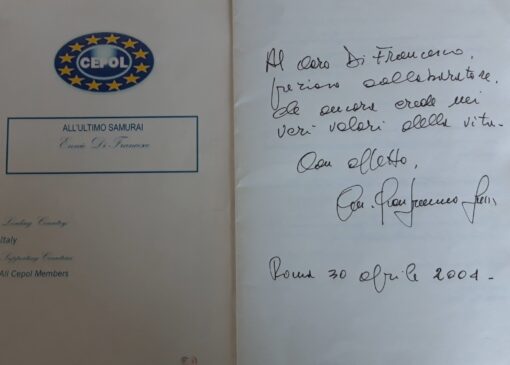 CEPOL
ALL'ULTIMO SAMURAI
Ennio Di Francesco
Leading Country
Italy
Supporting Countries
All Cepol Members
Al caro Di Francesco,
prezioso collaboratore,
che ancora crede nei
veri valori della vita.
Con affetto,
Gianfranco
Roma 30 aprile 2004-